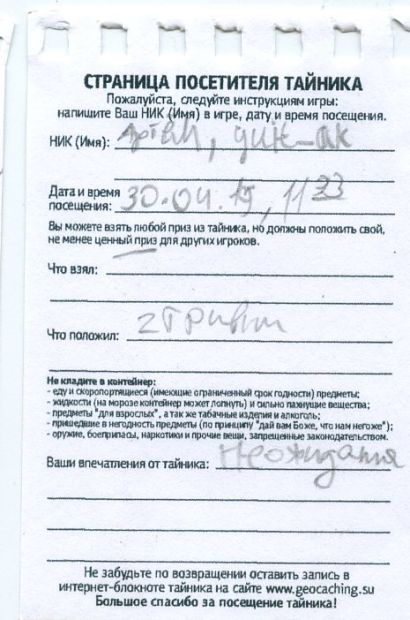 СТРАНИЦА ПОСЕТИТЕЛЯ ТАЙНИКА
Пожалуйста, следуйте инструкциям игры:
напишите Ваш НИК (Имя) в игре, дату и время посещения.
НИК (Имя):
Дата и время
посещения: 30.04.19, 11 33
Вы можете взять любой приз из тайника, но должны положить свой,
не менее ценный приз для других игроков.
Что взял:
Что положил:
Не кладите в контейнер:
- еду и скоропортящиеся (имеющие ограниченный срок годности) предметы;
- жидкости (на морозе контейнер может лопнуть) и сильно пахнущие вещества;
- предметы "для взрослых", а так же табачные изделия и алкоголь;
- пришедшие в негодность предметы (по принципу "дай вам Боже, что нам негоже");
- оружие, боеприпасы, наркотики и прочие вещи, запрещенные законодательством.
Ваши впечатления от тайника:
Не забудьте по возвращении оставить запись в
интернет-блокноте тайника на сайте www.geocaching.su
Большое спасибо за посещение тайника!